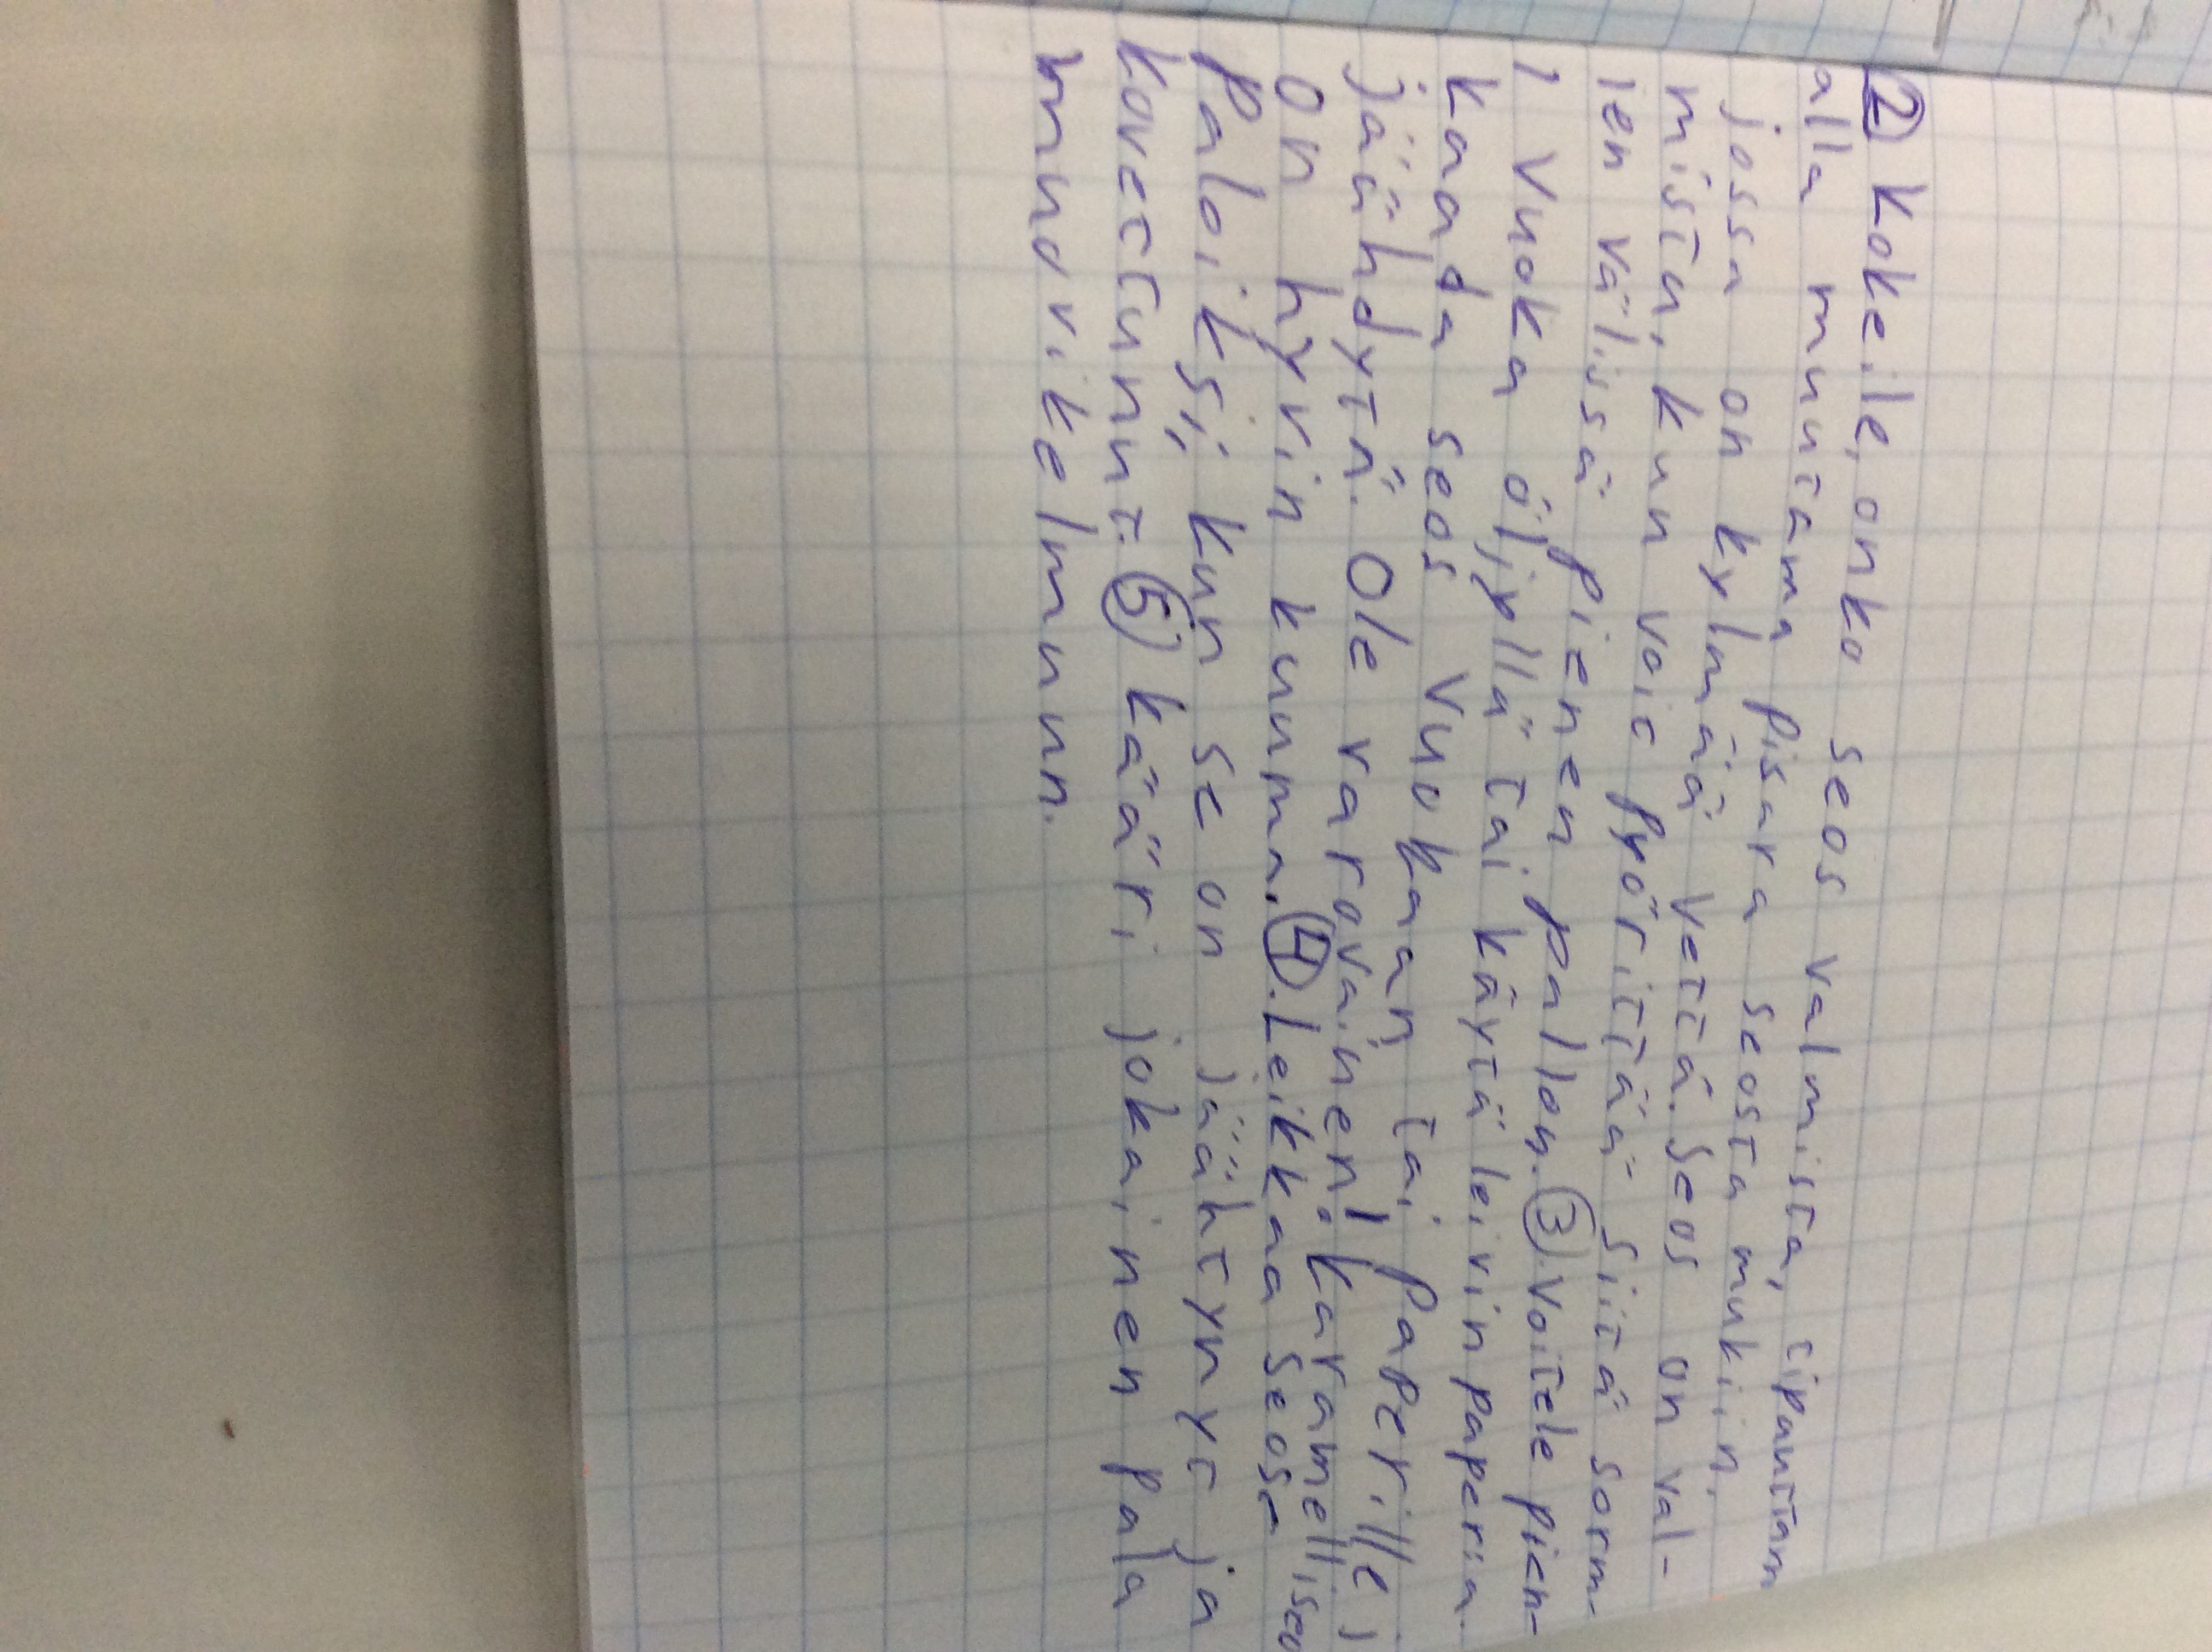 ② Kokeile, onko seos valmista, tiputtam
alla muutama pisara seosta mukiin,
jossa on kylmää vettä. Seos on val-
mista, kun voit pyörittää siitä sorm-
ien välissä pienen pallon. ③. Voitele pien-
i vuoka öljyllä tai käytä leivinpaperia.
Kaada seos vuokaan tai paperille j
jäähdytä. Ole varovainen! Karamelliseo
on hyvin kuuma. ④. Leikkaa seose
paloiksi, kun se on jäähtynyt ja
kovettunut. ⑤ Kääri jokainen pala
muovikelmuun.